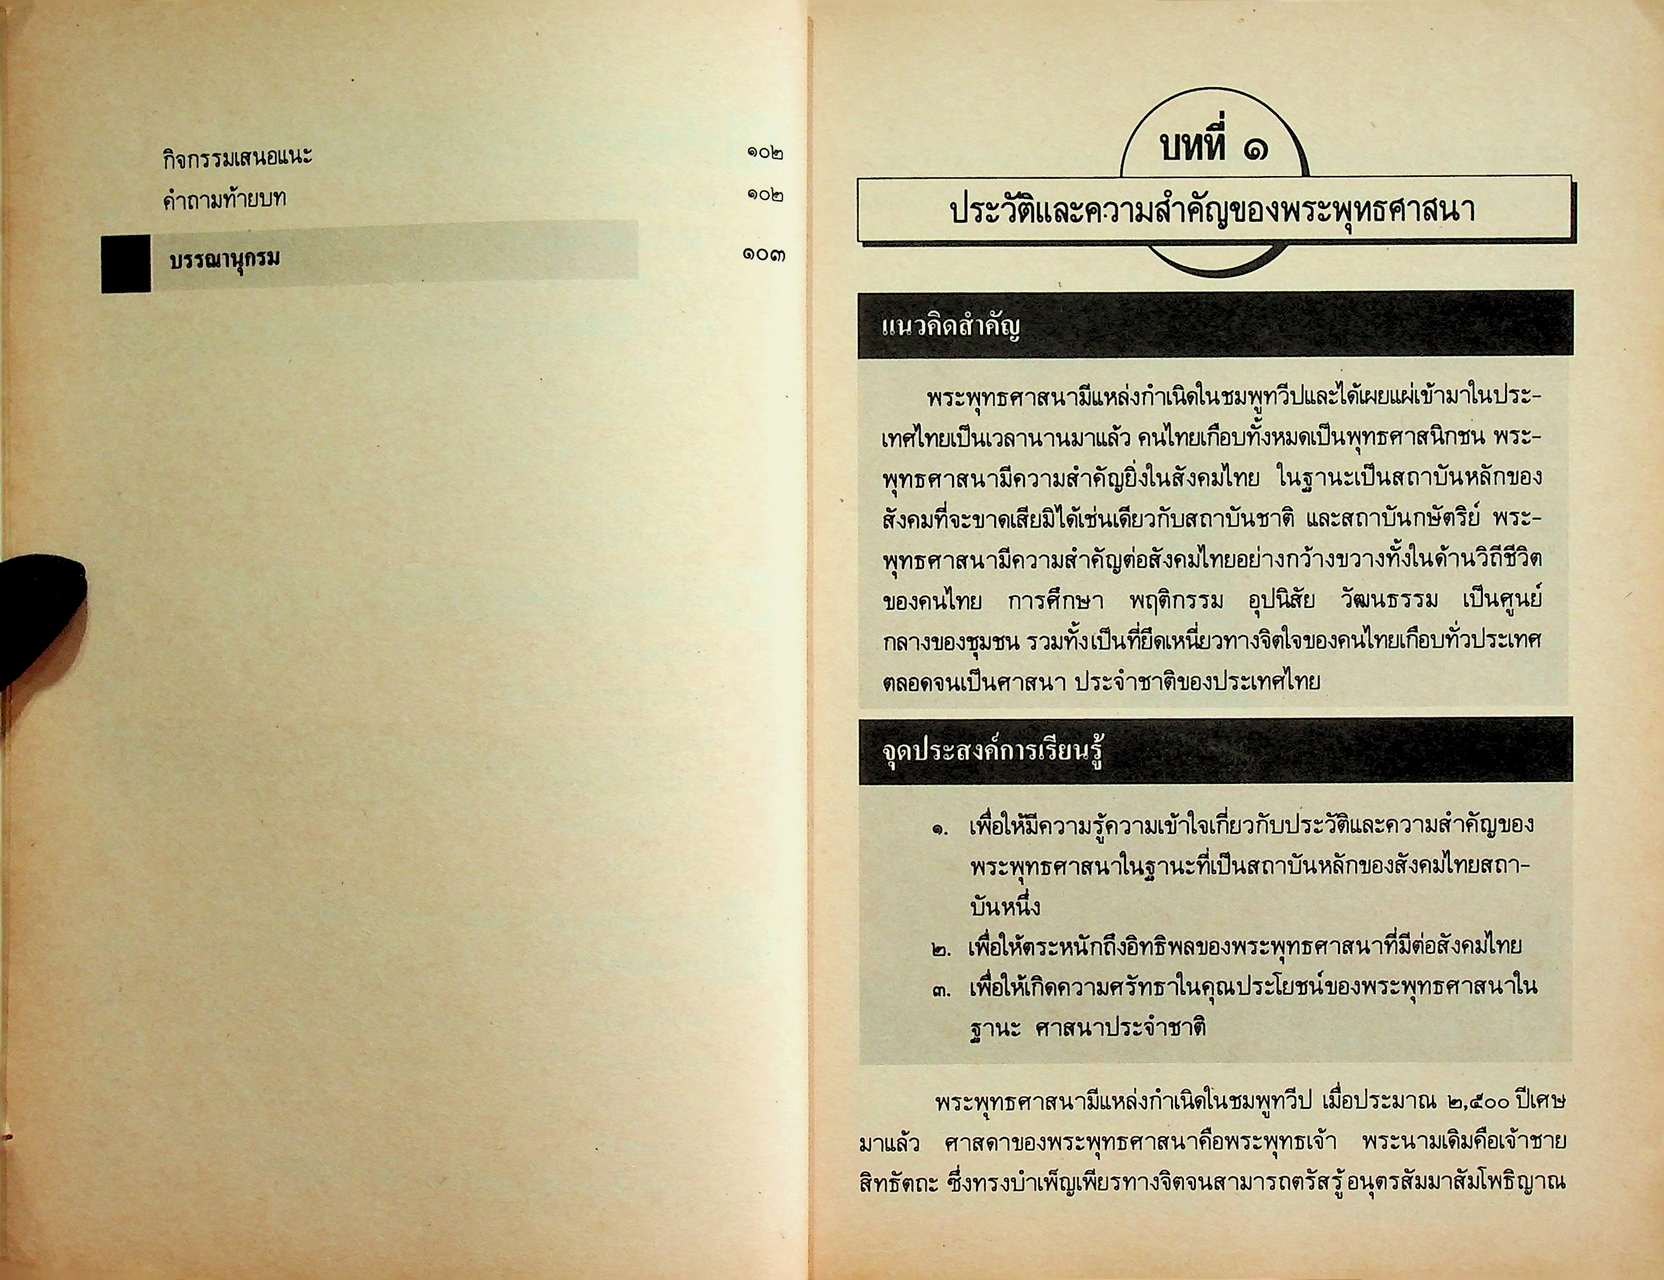 กิจกรรมเสนอแนะ ๑๐๒
คำถามท้ายบท ๑๐๒
บรรณานุกรม ๑๐๓
บทที่ ๑
ประวัติและความสำคัญของพระพุทธศาสนา
แนวคิดสำคัญ
พระพุทธศาสนามีแหล่งกำเนิดในชมพูทวีปและได้เผยแผ่เข้ามาในประ-
เทศไทยเป็นเวลานานมาแล้ว คนไทยเกือบทั้งหมดเป็นพุทธศาสนิกชน พระ-
พุทธศาสนามีความสำคัญยิ่งในสังคมไทย ในฐานะเป็นสถาบันหลักของ
สังคมที่จะขาดเสียมิได้เช่นเดียวกับสถาบันชาติ และสถาบันกษัตริย์ พระ-
พุทธศาสนามีความสำคัญต่อสังคมไทยอย่างกว้างขวางทั้งในด้านวิถีชีวิต
ของคนไทย การศึกษา พฤติกรรม อุปนิสัย วัฒนธรรม เป็นศูนย์
กลางของชุมชน รวมทั้งเป็นที่ยึดเหนี่ยวทางจิตใจของคนไทยเกือบทั่วประเทศ
ตลอดจนเป็นศาสนา ประจำชาติของประเทศไทย
จุดประสงค์การเรียนรู้
๑. เพื่อให้มีความรู้ความเข้าใจเกี่ยวกับประวัติและความสำคัญของ
พระพุทธศาสนาในฐานะที่เป็นสถาบันหลักของสังคมไทยสถา-
บันหนึ่ง
๒. เพื่อให้ตระหนักถึงอิทธิพลของพระพุทธศาสนาที่มีต่อสังคมไทย
๓. เพื่อให้เกิดความศรัทธาในคุณประโยชน์ของพระพุทธศาสนาใน
ฐานะ ศาสนาประจำชาติ
พระพุทธศาสนามีแหล่งกำเนิดในชมพูทวีป เมื่อประมาณ ๒,๕๐๐ ปีเศษ
มาแล้ว ศาสดาของพระพุทธศาสนาคือพระพุทธเจ้า พระนามเดิมคือเจ้าชาย
สิทธัตถะ ซึ่งทรงบำเพ็ญเพียรทางจิตจนสามารถตรัสรู้อนุตรสัมมาสัมโพธิญาณ